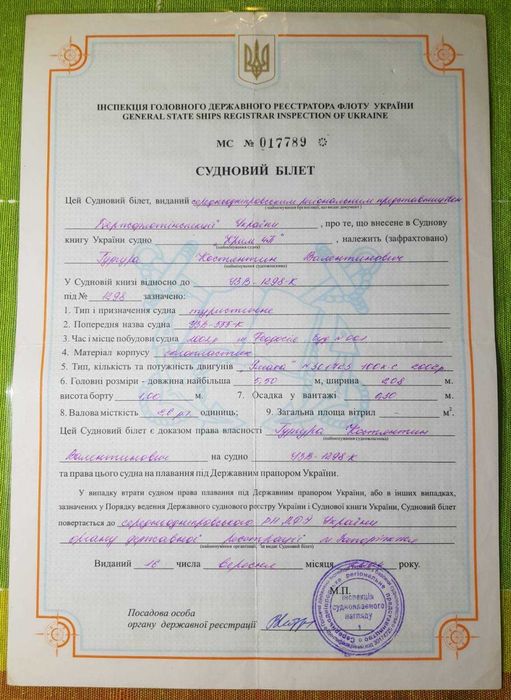 ІНСПЕКЦІЯ ГОЛОВНОГО ДЕРЖАВНОГО РЕЄСТРАТОРА ФЛОТУ УКРАЇНИ
GENERAL STATE SHIPS REGISTRAR INSPECTION OF UKRAINE
МС № 017789
СУДНОВИЙ БІЛЕТ
Цей Судновий білет, виданий середньодніпровським регіональним представництвом
(найменування організації, що видає документ)
України, про те, що внесене в Суднову
книгу України судно "Крим 4П", належить (зафрахтовано)
(найменування судна)
Гугура Костянтин Валентинович
(найменування судновласника)
У Судновій книзі відносно до УЗВ-1298-К
під № 1298 зазначено:
1. Тип і призначення судна туристичне
2. Попередня назва судна УЗВ-555-К
3. Час і місце побудови судна Феодосія
4. Матеріал корпусу склопластик
5. Тип, кількість та потужність двигунів 100 к.с. СССР
6. Головні розміри - довжина найбільша 5,50 м, ширина 2,08 м.
висота борту 1,00 м. 7. Осадка у вантажі 0,50 м.
8. Валова місткість 2,0 одиниць; 9. Загальна площа вітрил – м².
Цей Судновий білет є доказом права власності Гугура Костянтин
(найменування судновласника)
Валентинович на судно УЗВ-1298-К
та права цього судна на плавання під Державним прапором України.
У випадку втрати судном права плавання під Державним прапором України, або в інших випадках,
зазначених у Порядку ведення Державного суднового реєстру України і Суднової книги України, Судновий білет
повертається до середньодніпровського України
органу державної реєстрації м Запоріжжя
(найменування організації, що видає Судновий білет)
Виданий 16 числа вересня місяця року.
М.П.
Посадова особа
органу державної реєстрації
Інспекція
судноплавного
нагляду
1